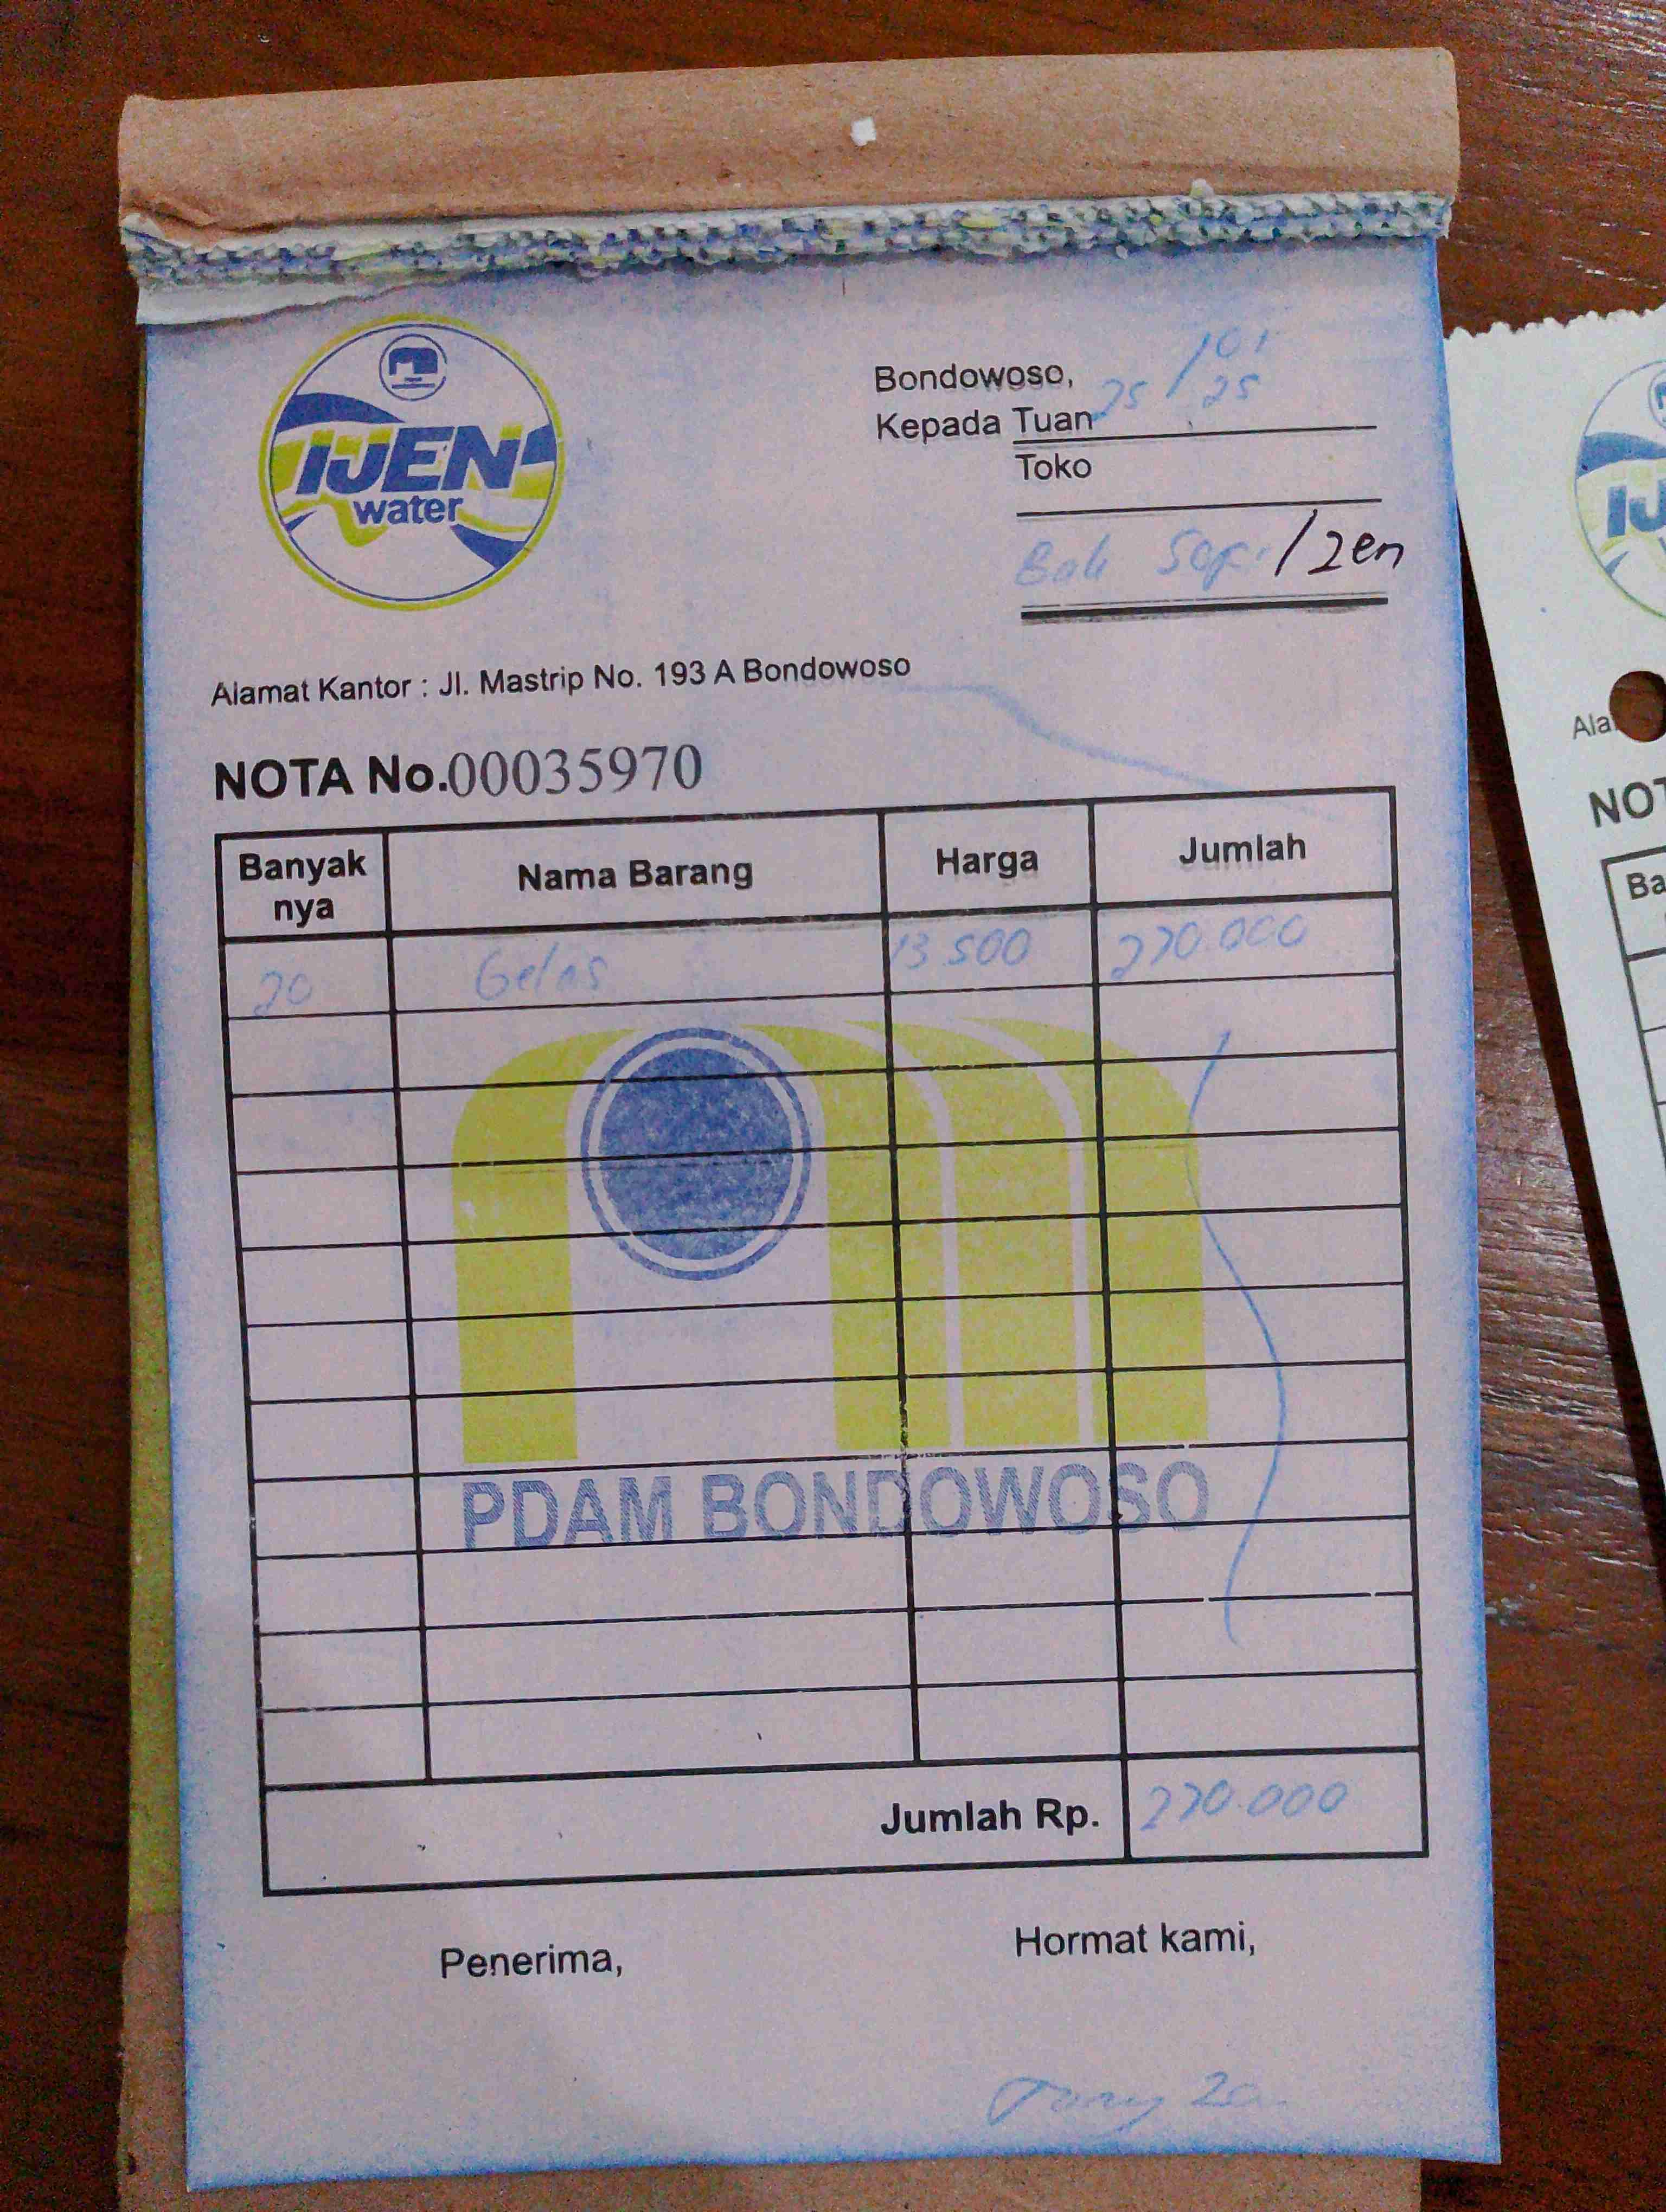 IJEN
water
Bondowoso, 25/01 25
Kepada Tuan
Toko
/zen
Alamat Kantor : Jl. Mastrip No. 193 A Bondowoso
NOTA No.00035970
Banyak nya Nama Barang Harga Jumlah
20 Gelas 13.500 270.000
PDAM BONDOWOSO
Jumlah Rp. 270.000
Penerima, Hormat kami,
IJ
Ala
NOT
Ba